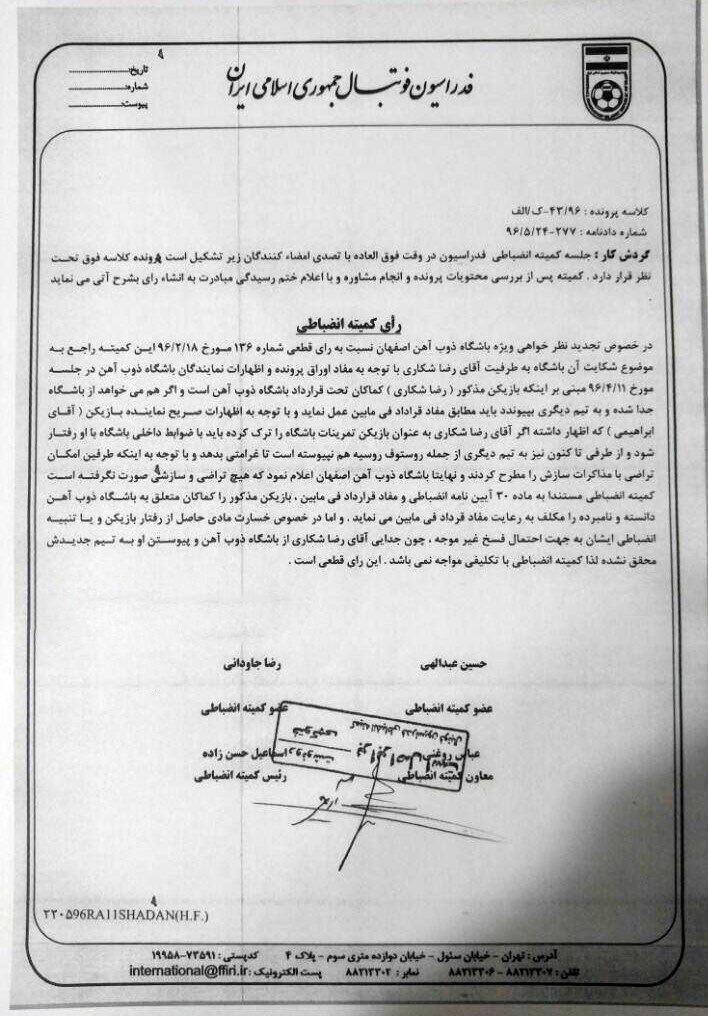 فدراسیون فوتبال جمهوری اسلامی ایران
تاریخ:
شماره:
پیوست:
کلاسه پرونده : ۴۳/۹۶-ک/الف
شماره دادنامه : ۲۷۷-۹۶/۵/۲۴
گردش کار : جلسه کمیته انضباطی فدراسیون در وقت فوق العاده با تصدی امضاء کنندگان زیر تشکیل است پرونده کلاسه فوق تحت
نظر قرار دارد . کمیته پس از بررسی محتویات پرونده و انجام مشاوره و با اعلام ختم رسیدگی مبادرت به انشاء رای بشرح آتی می نماید
.
رأی کمیته انضباطی
در خصوص تجدید نظر خواهی ویژه باشگاه ذوب آهن اصفهان نسبت به رای قطعی شماره ۱۳۶ مورخ ۹۶/۲/۱۸ این کمیته راجع به
موضوع شکایت آن باشگاه به طرفیت آقای رضا شکاری با توجه به مفاد اوراق پرونده و اظهارات نمایندگان باشگاه ذوب آهن در جلسه
مورخ ۹۶/۴/۱۱ مبنی بر اینکه بازیکن مذکور ( رضا شکاری ) کماکان تحت قرارداد باشگاه ذوب آهن است و اگر هم می خواهد از باشگاه
جدا شده و به تیم دیگری بپیوندد باید مطابق مفاد قراداد فی مابین عمل نماید و با توجه به اظهارات صریح نماینده بازیکن ( آقای
ابراهیمی ) که اظهار داشته اگر آقای رضا شکاری به عنوان بازیکن تمرینات باشگاه را ترک کرده باید با ضوابط داخلی باشگاه با او رفتار
شود و از طرفی تا کنون نیز به تیم دیگری از جمله روستوف روسیه هم نپیوسته است تا غرامتی بدهد و با توجه به اینکه طرفین امکان
تراضی با مذاکرات سازش را مطرح کردند و نهایتا باشگاه ذوب آهن اصفهان اعلام نمود که هیچ تراضی و سازشی صورت نگرفته است
کمیته انضباطی مستندا به ماده ۳۰ آیین نامه انضباطی و مفاد قرارداد فی مابین ، بازیکن مذکور را کماکان متعلق به باشگاه ذوب آهن
دانسته و نامبرده را مکلف به رعایت مفاد قرداد فی مابین می نماید . و اما در خصوص خسارت مادی حاصل از رفتار بازیکن و یا تنبیه
انضباطی ایشان به جهت احتمال فسخ غیر موجه ، چون جدایی آقای رضا شکاری از باشگاه ذوب آهن و پیوستن او به تیم جدیدش
محقق نشده لذا کمیته انضباطی با تکلیفی مواجه نمی باشد . این رای قطعی است .
حسین عبدالهی
رضا جاودانی
عضو کمیته انضباطی
عضو کمیته انضباطی
کمیته انضباطی فدراسیون فوتبال
رونوشت
برابر اصل است
عباس
اسماعیل حسن زاده
معاون کمیته انضباطی
رئیس کمیته انضباطی
۲۲۰۵96RA11SHADAN(H.F.)
آدرس : تهران - خیابان سئول - خیابان دوازده متری سوم - پلاک ۴ کدپستی : ۷۳۵۹۱-۱۹۹۵۸
تلفن : ۸۸۲۱۳۳۰۷ - ۸۸۲۱۳۳۰۶ نمابر : ۸۸۲۱۳۳۰۲ پست الکترونیک : international@ffiri.ir